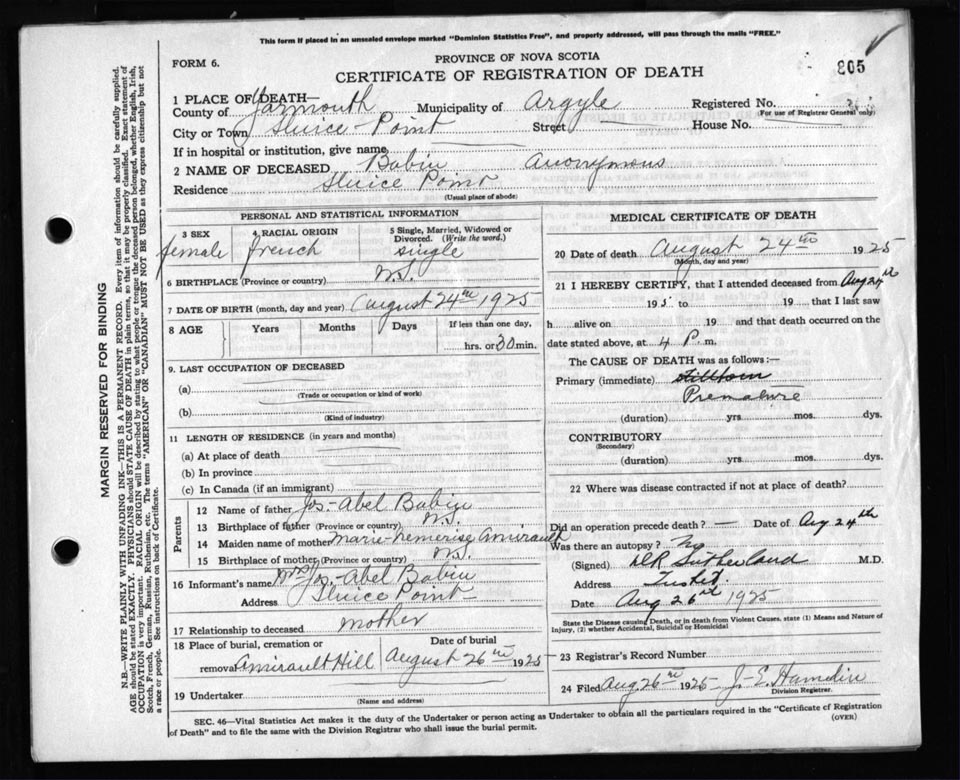 This form if placed in an unsealed envelope marked "Dominion Statistics Free", and properly addressed, will pass through the mails "FREE."
FORM 6.
PROVINCE OF NOVA SCOTIA
CERTIFICATE OF REGISTRATION OF DEATH
805
1 PLACE OF DEATH—
County of Yarmouth Municipality of Argyle Registered No.
(For use of Registrar General only)
City or Town Sluice-Point Street House No.
If in hospital or institution, give name
2 NAME OF DECEASED Babin Anonymous
Residence Sluice Point
(Usual place of abode)
PERSONAL AND STATISTICAL INFORMATION
3 SEX female
4 RACIAL ORIGIN french
5 Single, Married, Widowed or Divorced. (Write the word.) single
6 BIRTHPLACE (Province or country) N.S.
7 DATE OF BIRTH (month, day and year) August 24th 1925
8 AGE Years Months Days If less than one day,
hrs. or 30 min.
9. LAST OCCUPATION OF DECEASED
(a)
(Trade or occupation or kind of work)
(b)
(Kind of industry)
11 LENGTH OF RESIDENCE (in years and months)
(a) At place of death
(b) In province
(c) In Canada (if an immigrant)
Parents
12 Name of father Jos-Abel Babin
13 Birthplace of father (Province or country) N.S.
14 Maiden name of mother Marie-Nemerise Amirault
15 Birthplace of mother (Province or country) N.S.
16 Informant's name Mrs Jos-Abel Babin
Address Sluice Point
17 Relationship to deceased mother
18 Place of burial, cremation or removal Amirault Hill
Date of burial August 26th 1925
19 Undertaker
(Name and address)
MEDICAL CERTIFICATE OF DEATH
20 Date of death August 24th 1925
(Month, day and year)
21 I HEREBY CERTIFY, that I attended deceased from Aug 24th
195 to 19 that I last saw
h alive on 19 and that death occurred on the
date stated above, at 4 P. m.
The CAUSE OF DEATH was as follows:—
Primary (immediate) stillborn
Premature
(duration) yrs. mos. dys.
CONTRIBUTORY
(Secondary)
(duration) yrs. mos. dys.
22 Where was disease contracted if not at place of death?
Did an operation precede death? — Date of Aug 24th
Was there an autopsy? No
(Signed) Sutherland M.D.
Address Tusket.
Date Aug 26th 1925
State the Disease causing Death, or in death from Violent Causes, state (1) Means and Nature of
Injury, (2) whether Accidental, Suicidal or Homicidal
23 Registrar's Record Number
24 Filed Aug 26th 1925 J-E. Division Registrar.
SEC. 46—Vital Statistics Act makes it the duty of the Undertaker or person acting as Undertaker to obtain all the particulars required in the "Certificate of Registration
of Death" and to file the same with the Division Registrar who shall issue the burial permit.
(OVER)
MARGIN RESERVED FOR BINDING
N.B.—WRITE PLAINLY WITH UNFADING INK—THIS IS A PERMANENT RECORD. Every item of information should be carefully supplied.
AGE should be stated EXACTLY. PHYSICIANS should STATE CAUSE OF DEATH in plain terms, so that it may be properly classified. Exact statement of
OCCUPATION is very important. RACIAL ORIGIN will be described by stating to what people or tongue the deceased person belonged, whether English, Irish,
Scotch, French, German, Russian, Ruthenian, etc. The terms "AMERICAN" OR "CANADIAN" MUST NOT BE USED as they express citizenship but not
a race or people. See instructions on back of Certificate.